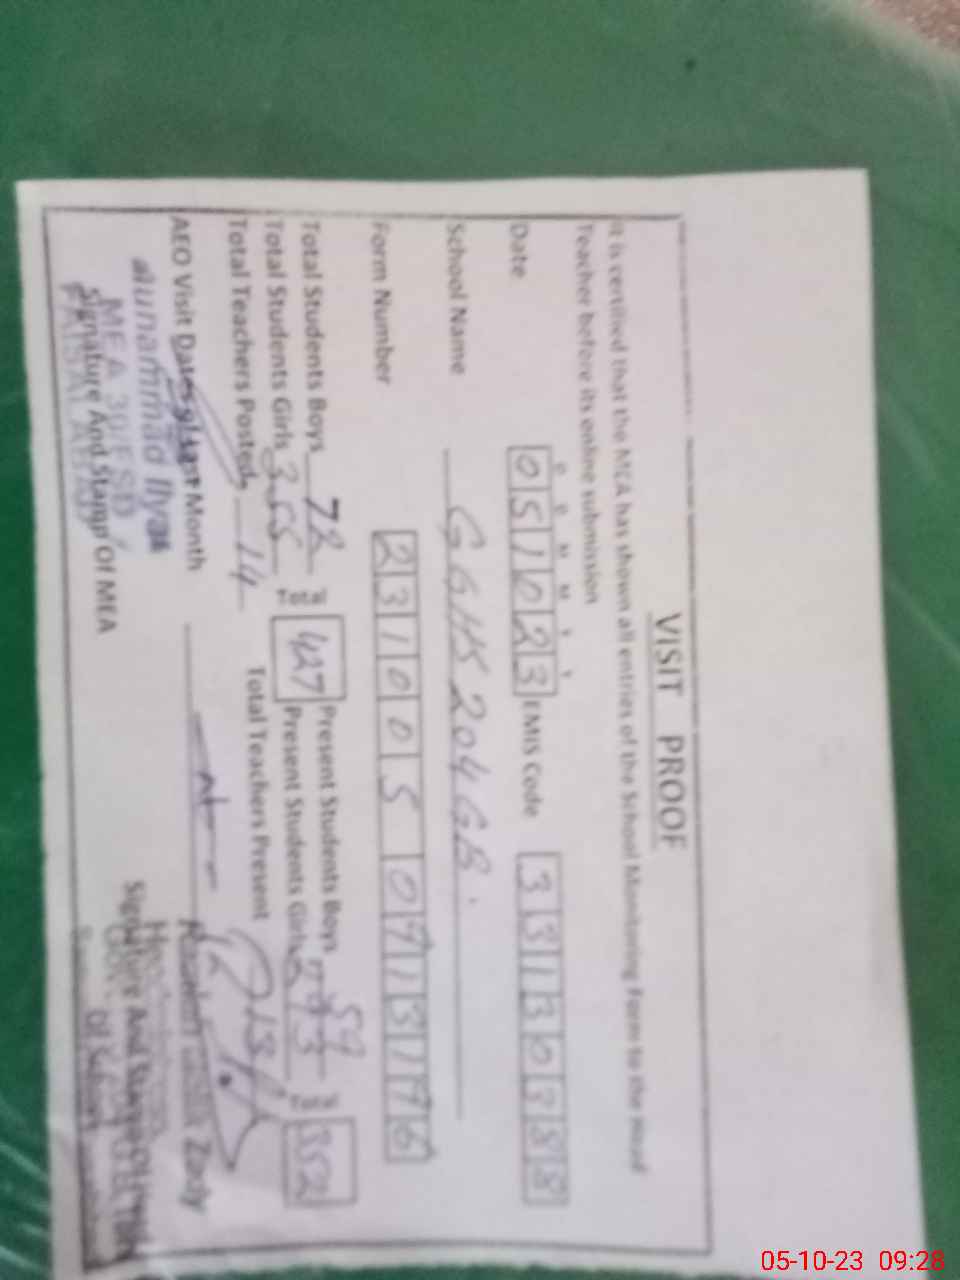 VISIT PROOF
It is certified that the MEA has shown all entries of the School Monitoring Form to the Head
Teacher before its online submission
D D M M Y Y
Date 051023 EMIS Code 33130388
School Name GGHS 204 GB.
Form Number 231005
Total Students Boys 72 Present Students Boys 59
Total Students Girls 355 427 Present Students Girls 352
Total Teachers Posted 14 Total Teachers Present
AEO Visit Dates of Last Month
Muhammad Ilyas
MEA 30/FSD
Signature And Stamp Of MEA
FAISALABAD
Signature And
Of School
05-10-23 09:28